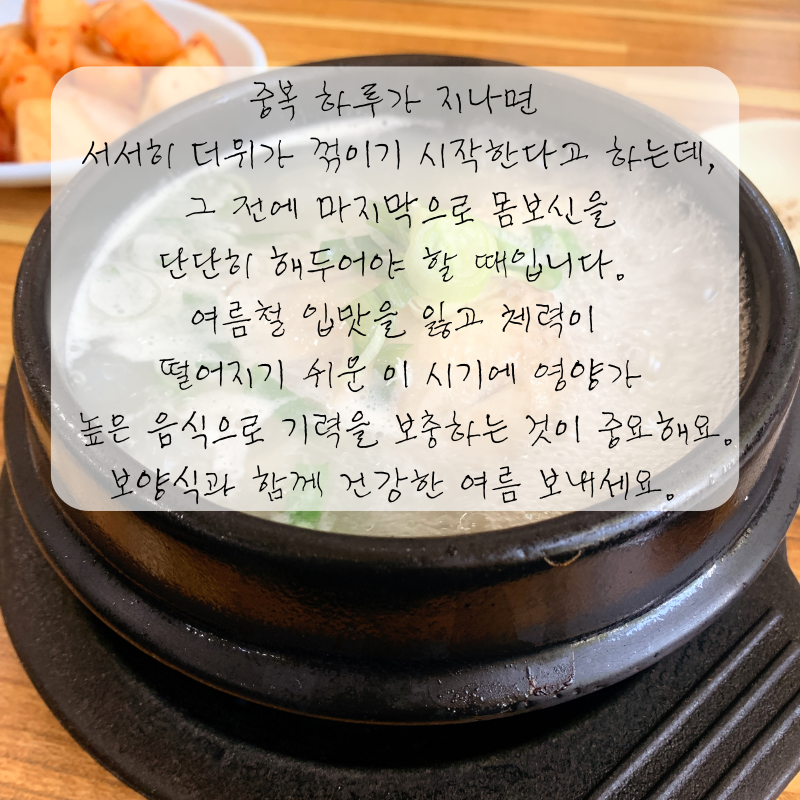 중복 하루가 지나면
서서히 더위가 꺾이기 시작한다고 하는데,
그 전에 마지막으로 몸보신을
단단히 해두어야 할 때입니다.
여름철 입맛을 잃고 체력이
떨어지기 쉬운 이 시기에 영양가
높은 음식으로 기력을 보충하는 것이 중요해요.
보양식과 함께 건강한 여름 보내세요.